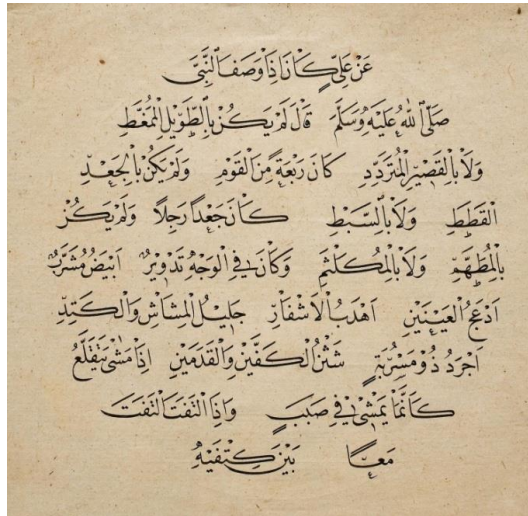 عَنْ عَلِيٍّ كَانَ اِذَا وَصَفَ النَّبِيَّ
صَلَّى اللهُ عَلَيْهِ وَسَلَّمَ قَالَ لَمْ يَكُنْ بِالطَّوِيلِ الْمُمَّغَطِ
وَلَا بِالْقَصِيرِ الْمُتَرَدِّدِ كَانَ رَبْعَةً مِنَ الْقَوْمِ وَلَمْ يَكُنْ بِالْجَعْدِ
الْقَطَطِ وَلَا بِالسَّبْطِ كَانَ جَعْدًا رَجِلًا وَلَمْ يَكُنْ
بِالْمُطَهَّمِ وَلَا بِالْمُكَلْثَمِ وَكَانَ فِي الْوَجْهِ تَدْوِيرٌ اَبْيَضُ مُشْرَبٌ
اَدْعَجُ الْعَيْنَيْنِ اَهْدَبُ الْاَشْفَارِ جَلِيلُ الْمُشَاشِ وَالْكَتِدِ
اَجْرَدُ ذُو مَسْرُبَةٍ شَثْنُ الْكَفَّيْنِ وَالْقَدَمَيْنِ اِذَا مَشٰى يَتَقَلَّعُ
كَاَنَّمَا يَمْشِي فِي صَبَبٍ وَاِذَا الْتَفَتَ الْتَفَتَ
مَعًا بَيْنَ كَتِفَيْهِ